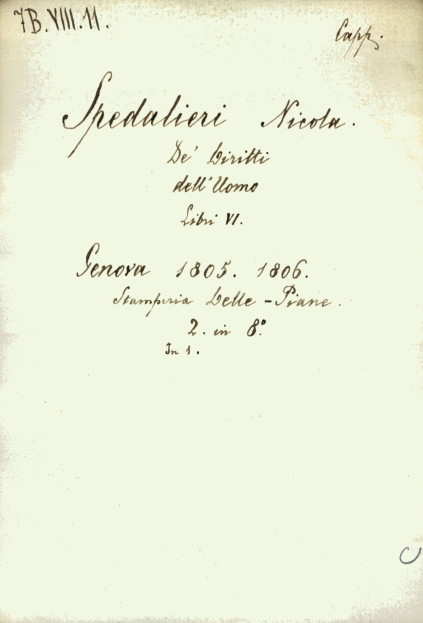 7B.VIII.11.
Capp.
Spedalieri Nicola.
De' Diritti
dell'Uomo
Libri VI.
Genova 1805. 1806.
Stamperia Delle-Piane.
2. in 8°
In 1.